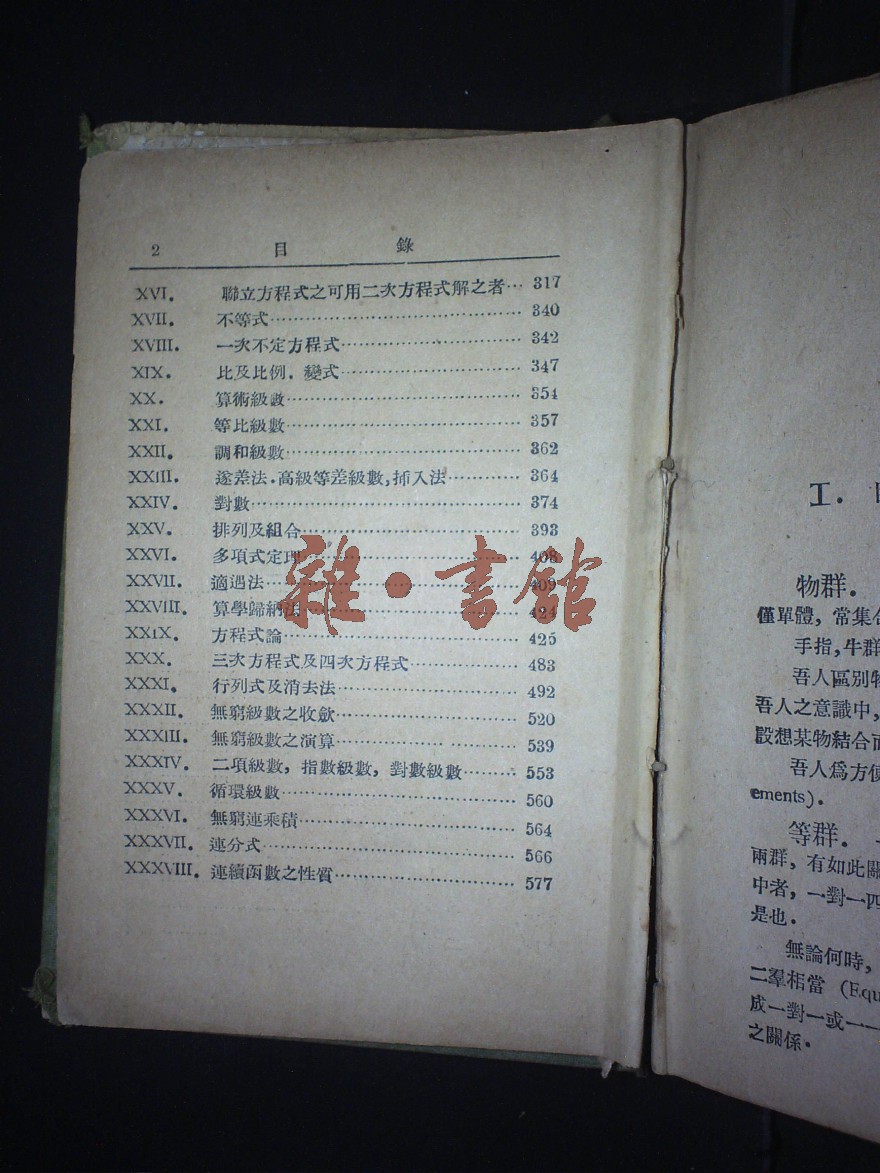 2 目 錄
XVI. 聯立方程式之可用二次方程式解之者… 317
XVII. 不等式 340
XVIII. 一次不定方程式 342
XIX. 比及比例．變式 347
XX. 算術級數 354
XXI. 等比級數 357
XXII. 調和級數 362
XXIII. 遞差法．高級等差級數,插入法 364
XXIV. 對數 374
XXV. 排列及組合 393
XXVI. 多項式定理 408
XXVII. 適遇法 409
XXVIII. 算學歸納法 424
XXIX. 方程式論 425
XXX. 三次方程式及四次方程式 483
XXXI. 行列式及消去法 492
XXXII. 無窮級數之收歛 520
XXXIII. 無窮級數之演算 539
XXXIV. 二項級數, 指數級數, 對數級數 553
XXXV. 循環級數 560
XXXVI. 無窮連乘積 564
XXXVII. 連分式 566
XXXVIII. 連續函數之性質 577
雜·書館
I.
物群．
僅單體, 常集合
手指,牛群
吾人區別物
吾人之意識中,
設想某物結合而
吾人爲方便
ements).
等群．
兩群, 有如此關
中者, 一對一
是也．
無論何時,
二羣相當 (Equ
成一對一或一一
之關係．